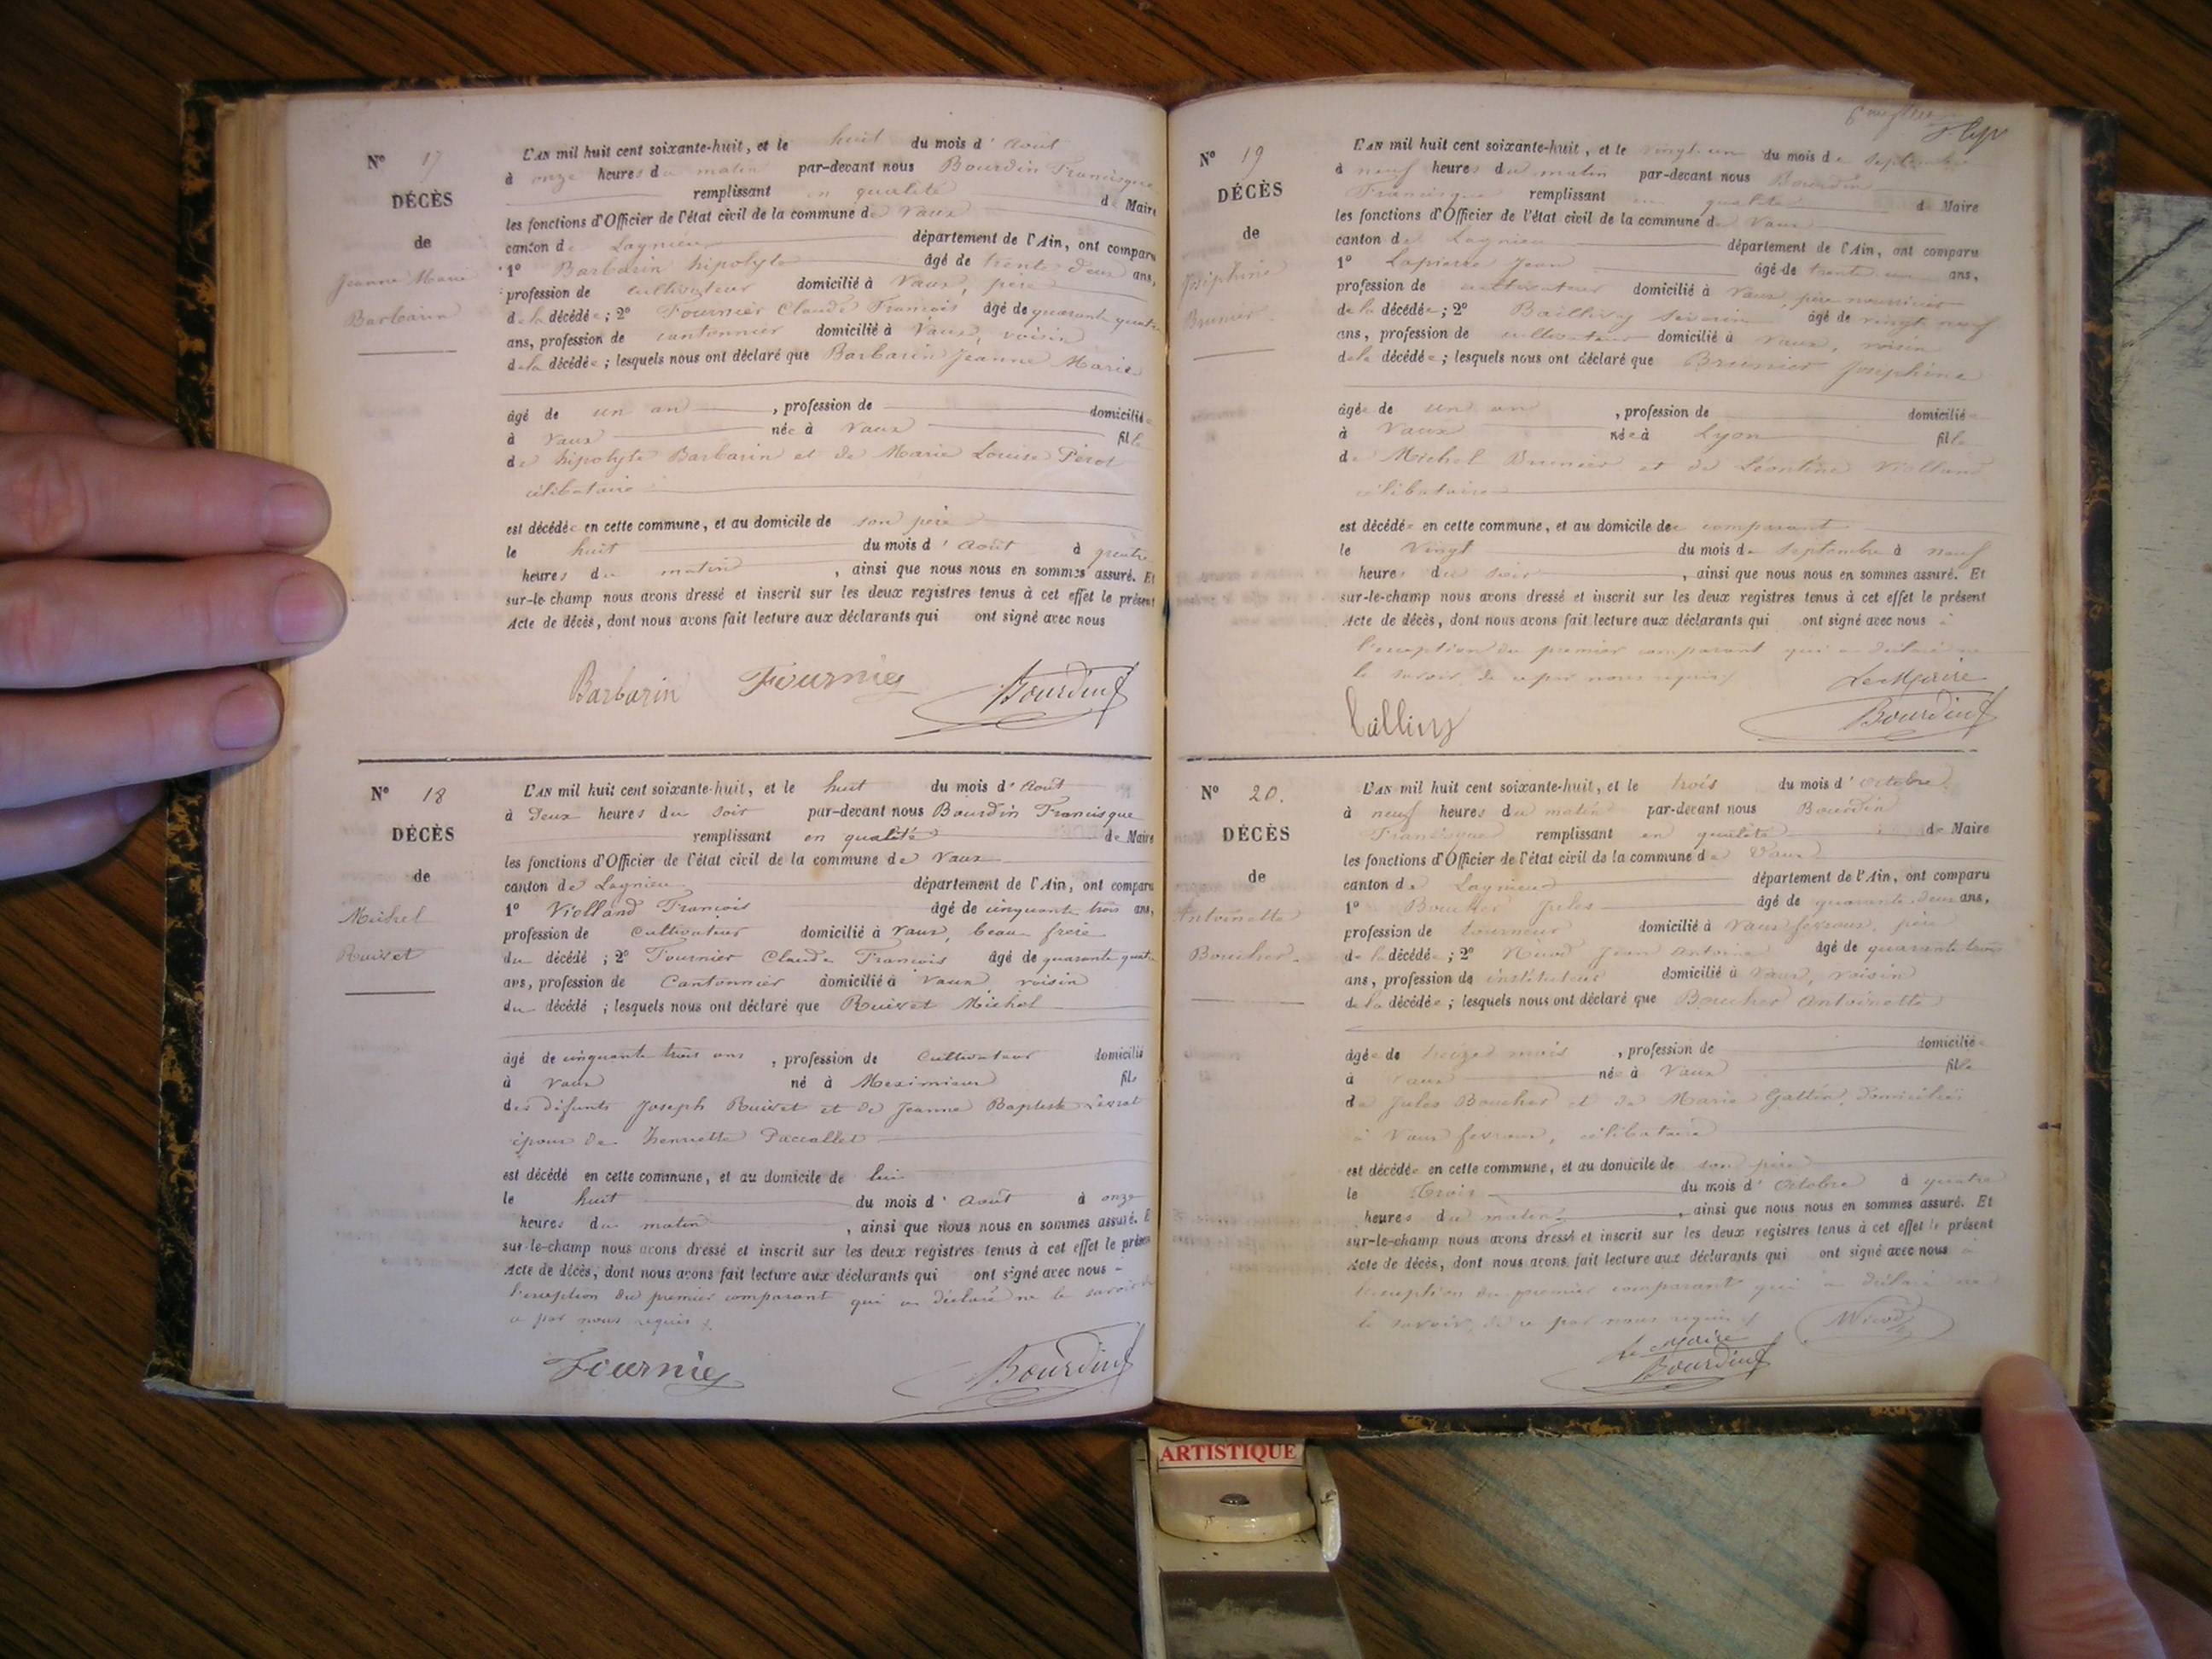 N° 17
DÉCÈS
de
Jeanne Marie
Barbarin
L'AN mil huit cent soixante-huit, et le huit du mois d' Août
à onze heures du matin par-devant nous Bourdin Francisque
remplissant en qualité de Maire
les fonctions d'Officier de l'état civil de la commune de Vaux
canton de Lagnieu département de l'Ain, ont comparu
1° Barbarin hipolyte âgé de trente deux ans,
profession de cultivateur domicilié à Vaux, père
de la décédée ; 2° Fournier Claude François âgé de quarante quatre
ans, profession de cantonnier domicilié à Vaux, voisin
de la décédée ; lesquels nous ont déclaré que Barbarin Jeanne Marie
âgé de un an , profession de domicilié
à Vaux née à Vaux fille
de hipolyte Barbarin et de Marie Louise Perot
célibataire
est décédée en cette commune, et au domicile de son père
le huit du mois d' Août à quatre
heures du matin , ainsi que nous nous en sommes assuré. Et
sur-le-champ nous avons dressé et inscrit sur les deux registres tenus à cet effet le présent
Acte de décès, dont nous avons fait lecture aux déclarants qui ont signé avec nous
Barbarin Fournier Bourdin
N° 18
DÉCÈS
de
Michel
Ruivet
L'AN mil huit cent soixante-huit, et le huit du mois d' Août
à deux heures du soir par-devant nous Bourdin Francisque
remplissant en qualité de Maire
les fonctions d'Officier de l'état civil de la commune de Vaux
canton de Lagnieu département de l'Ain, ont comparu
1° Violland François âgé de cinquante trois ans,
profession de Cultivateur domicilié à Vaux, beau frère
du décédé ; 2° Fournier Claude François âgé de quarante quatre
ans, profession de Cantonnier domicilié à Vaux voisin
du décédé ; lesquels nous ont déclaré que Ruivet Michel
âgé de cinquante trois ans , profession de Cultivateur domicilié
à Vaux né à Meximieux fils
des défunts Joseph Ruivet et de Jeanne Baptiste Levrat
époux de henriette Paccallet
est décédé en cette commune, et au domicile de lui
le huit du mois d' Août à onze
heures du matin , ainsi que nous nous en sommes assuré. E
sur-le-champ nous avons dressé et inscrit sur les deux registres tenus à cet effet le présen
Acte de décès, dont nous avons fait lecture aux déclarants qui ont signé avec nous à
l'exception du premier comparant qui a déclaré ne le savoir de
ce par nous requis
Fournier Bourdin
N° 19
DÉCÈS
de
Joséphine
Brunier
L'AN mil huit cent soixante-huit, et le vingt un du mois de Septembre
à neuf heures du matin par-devant nous Bourdin
Francisque remplissant en qualité de Maire
les fonctions d'Officier de l'état civil de la commune de Vaux
canton de Lagnieu département de l'Ain, ont comparu
1° Lapierre Jean âgé de trente un ans,
profession de cultivateur domicilié à Vaux, père nourricier
de la décédée ; 2° Séverin âgé de vingt neuf
ans, profession de cultivateur domicilié à Vaux, voisin
de la décédée ; lesquels nous ont déclaré que Brunier Joséphine
âgée de un an , profession de domicilié
à Vaux née à Lyon fille
de Michel Brunier et de Léontine Violland
célibataire
est décédée en cette commune, et au domicile de comparant
le Vingt du mois de Septembre à neuf
heures du soir , ainsi que nous nous en sommes assuré. Et
sur-le-champ nous avons dressé et inscrit sur les deux registres tenus à cet effet le présent
Acte de décès, dont nous avons fait lecture aux déclarants qui ont signé avec nous à
l'exception du premier comparant qui a déclaré ne
le savoir, de ce par nous requis
Le Maire
Bourdin
N° 20.
DÉCÈS
de
Antoinette
Boucher
L'AN mil huit cent soixante-huit, et le trois du mois d' octobre
à neuf heures du matin par-devant nous Bourdin
Francisque remplissant en qualité de Maire
les fonctions d'Officier de l'état civil de la commune de Vaux
canton de Lagnieu département de l'Ain, ont comparu
1° Boucher Jules âgé de quarante deux ans,
profession de tourneur domicilié à Vaux fevroux, père
de la décédée ; 2° Nicod Jean Antoine âgé de quarante trois
ans, profession de instituteur domicilié à Vaux, voisin
de la décédée ; lesquels nous ont déclaré que Boucher Antoinette
âgée de treize mois , profession de domicilié
à Vaux née à Vaux fille
de Jules Boucher et de Marie Gattin, domiciliés
à Vaux fevroux, célibataire
est décédée en cette commune, et au domicile de son père
le trois du mois d' Octobre à quatre
heures du matin , ainsi que nous nous en sommes assuré. Et
sur-le-champ nous avons dressé et inscrit sur les deux registres tenus à cet effet le présent
Acte de décès, dont nous avons fait lecture aux déclarants qui ont signé avec nous à
l'exception du premier comparant qui a déclaré ne
le savoir, de ce par nous requis
Nicod
Le Maire
Bourdin
ARTISTIQUE